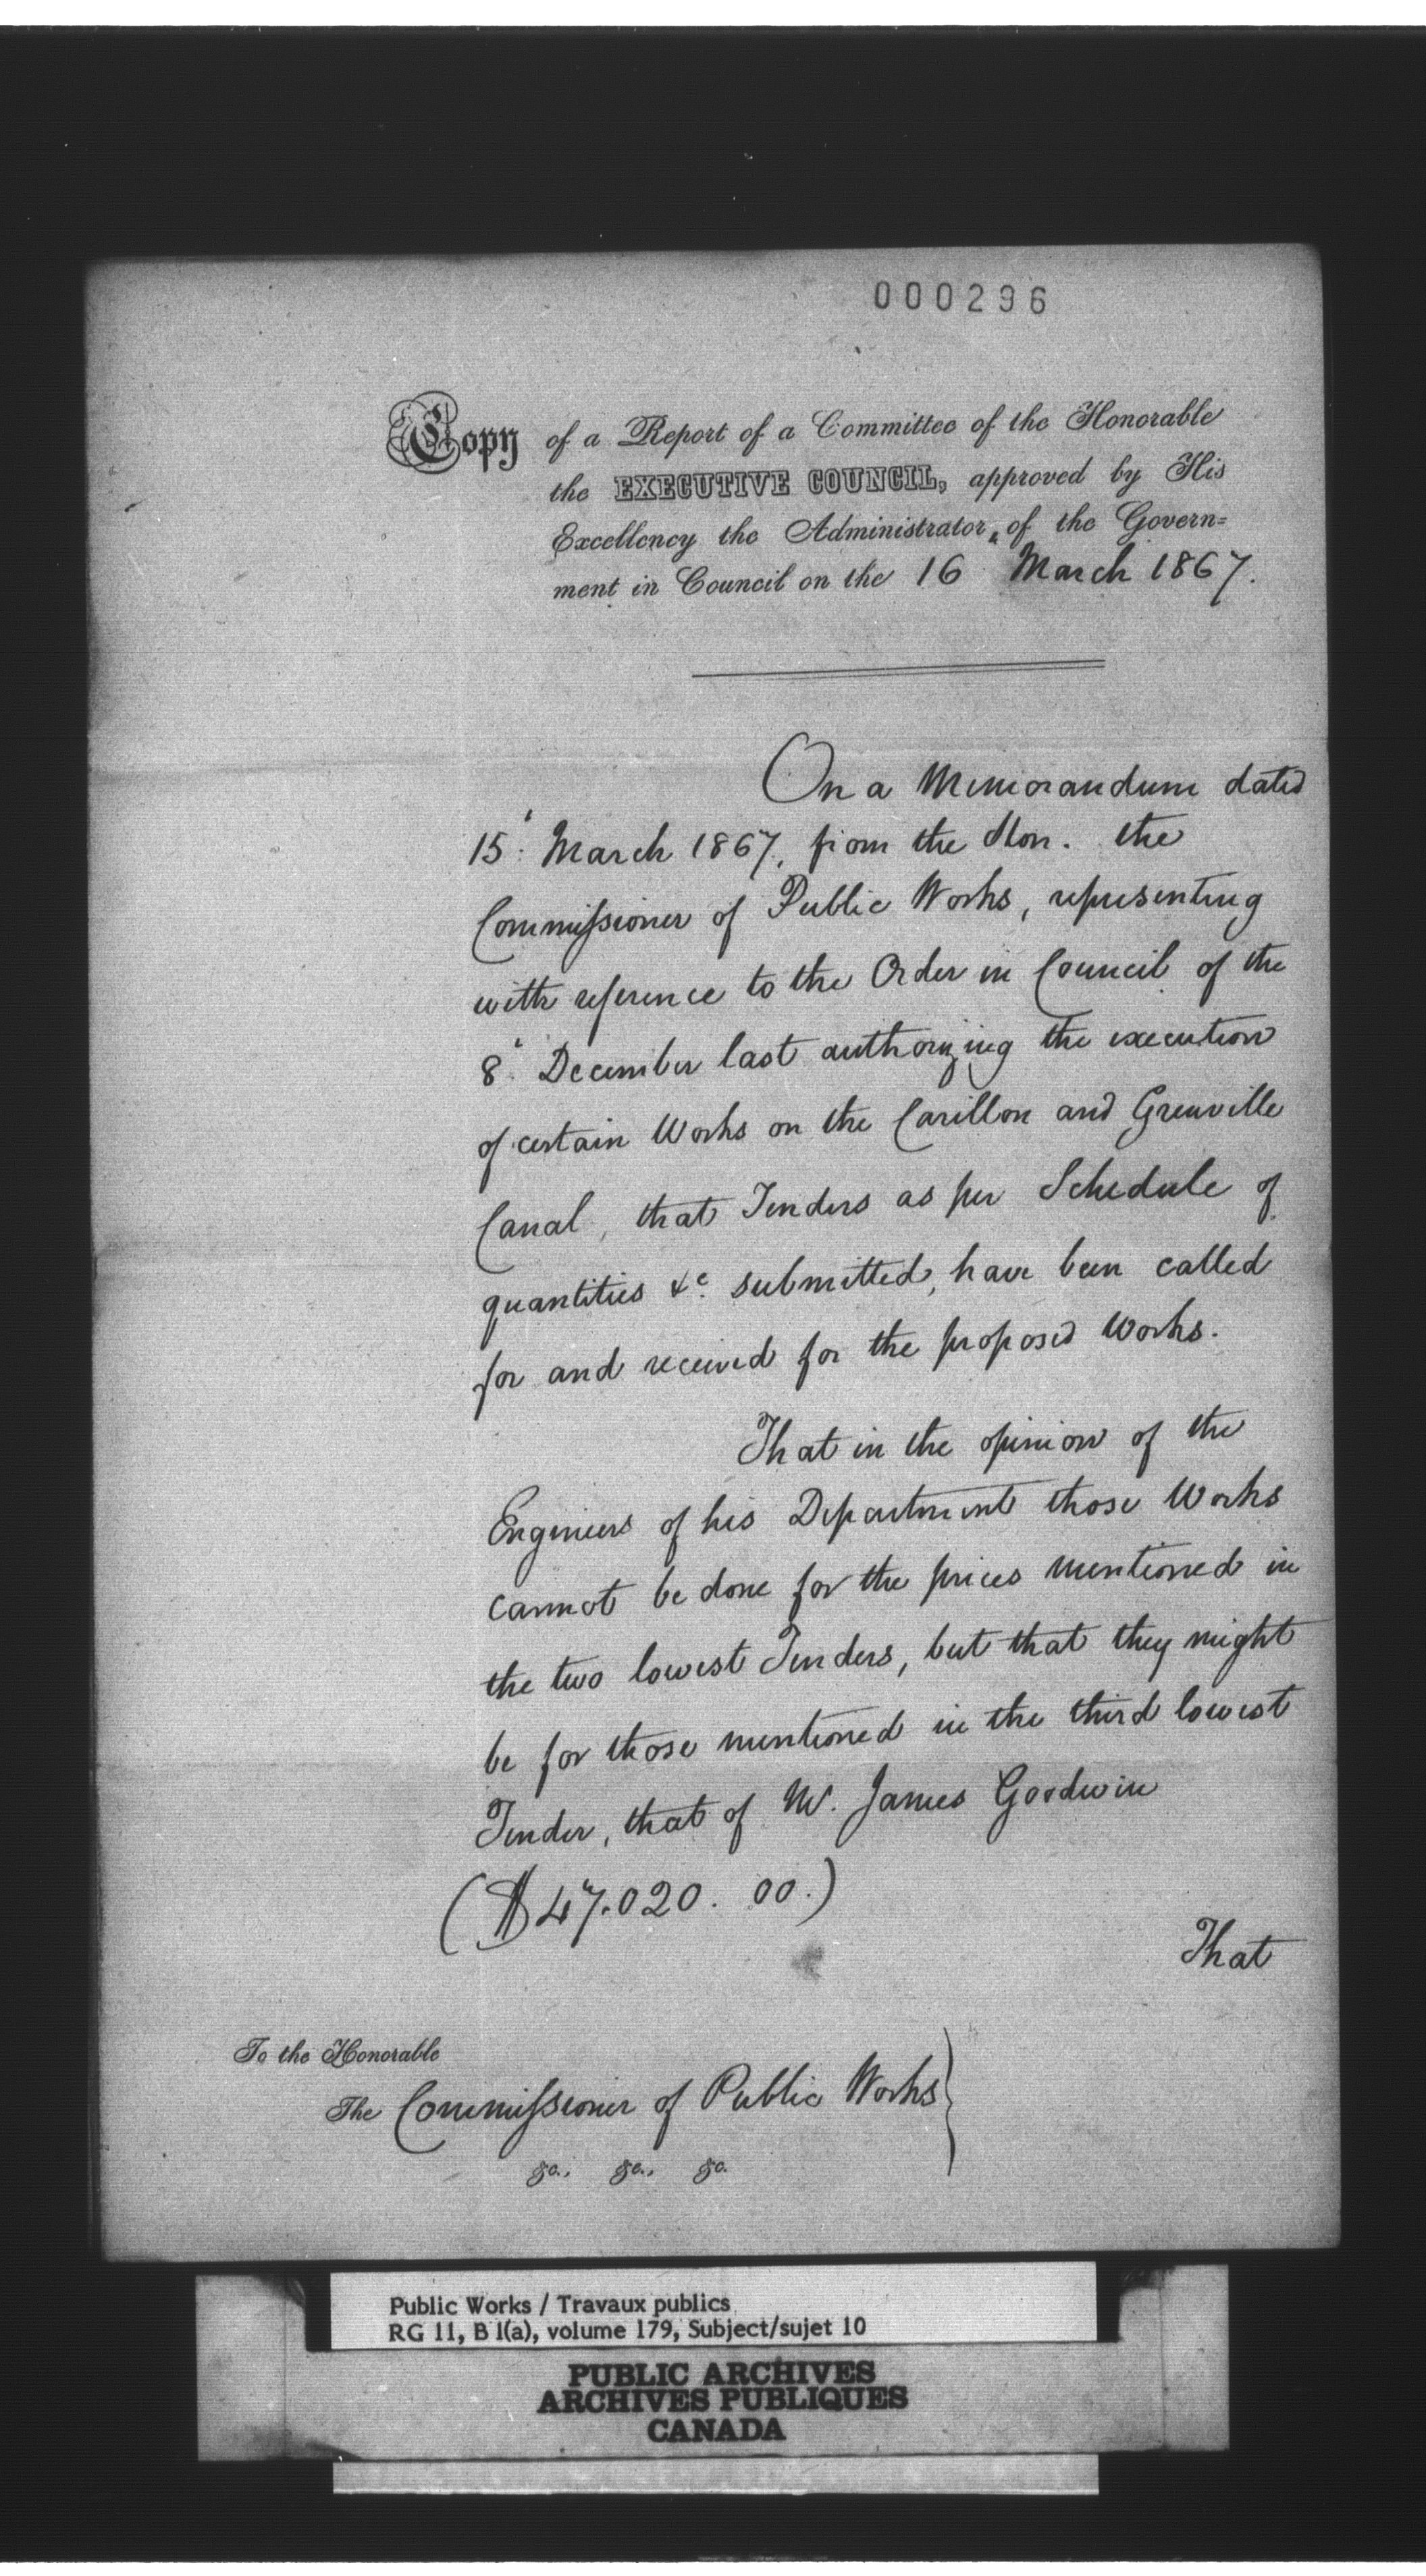 000296
Copy of a Report of a Committee of the Honorable
the EXECUTIVE COUNCIL, approved by His
Excellency the Administrator of the Govern=
ment in Council on the 16 March 1867.
On a Memorandum dated
15. March 1867, from the Hon. the
Commissioner of Public Works, representing
with reference to the Order in Council of the
8. December last authorizing the execution
of certain Works on the Carillon and Grenville
Canal, that Tenders as per Schedule of
quantities &c. submitted, have been called
for and received for the proposed Works.
That in the opinion of the
Engineers of his Department those Works
cannot be done for the prices mentioned in
the two lowest Tenders, but that they might
be for those mentioned in the third lowest
Tender, that of Mr. James Goodwin
($47.020. 00.)
That
To the Honorable
The Commissioner of Public Works
&c., &c., &c.
Public Works / Travaux publics
RG 11, B 1(a), volume 179, Subject/sujet 10
PUBLIC ARCHIVES
ARCHIVES PUBLIQUES
CANADA